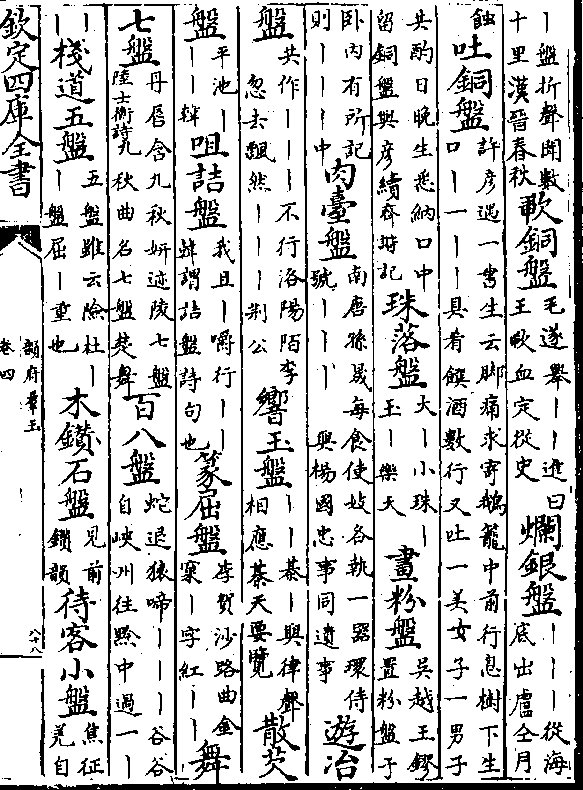 丨盤折聲聞數十里漢晉春秋歃銅盤毛遂舉丨丨進曰王歃血定從史爛銀盤丨丨丨從海底出盧仝月
蝕吐銅盤許彥遇一書生云脚痛求寄鵝籠中前行息樹下生口丨一丨丨丨具肴饌酒數行又吐一美女子一男子
共酌日晚生悉納口中留銅盤與彥續齊諧記珠落盤大丨小珠丨玉丨樂天畫粉盤吳越王鏐置粉盤于
卧内有所記則丨丨丨中肉臺盤南唐孫晟每食使妓各執一器環侍號丨丨丨與楊國忠事同遺事遊冶
盤共作丨丨丨不行洛陽陌李忽去飄然丨丨丨荆公響玉盤丨丨棊丨與律聲相應棊天要覽散芡
盤平池丨丨丨韓咀詰盤我且丨嚼行丨丨韓謂詰盤詩句也篆屈盤李賀沙路曲金窠丨字紅丨丨舞
七盤丹唇含九秋妍迹陵七盤陸士衡詩九秋曲名七盤楚舞百八盤蛇退猿啼丨丨丨谷谷自峽州往黔中過一丨
丨棧道五盤五盤雖云險杜丨丨盤屈丨重也木鑽石盤見前鑽韻待客小盤焦征羌自
欽定四庫全書
韻府羣玉
卷四
八十八